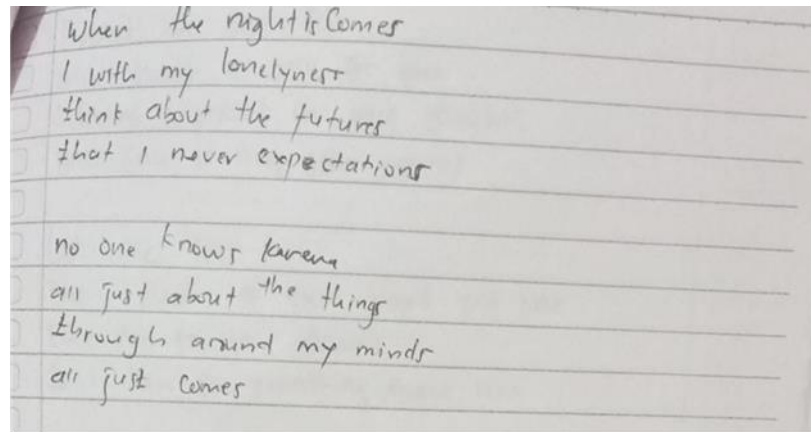 when the night is Comes
I with my lonelyness
think about the futures
that I never expectations
no one knows karena
all just about the things
through around my minds
all just comes